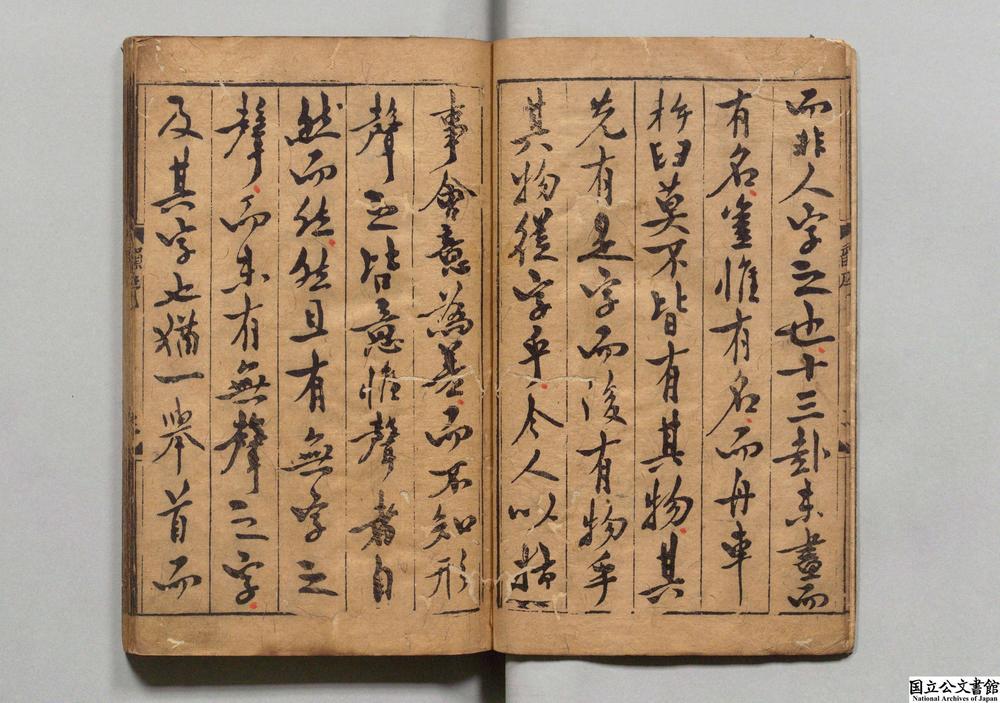 而非人字之也十三卦未畫而
有名畫惟有名而舟車
杵臼莫不皆有其物其
先有是字而後有物乎
其物從字乎今人以指
事會意為差而不知形
聲之皆意惟聲者自
然而然然且有無字之
聲而未有無聲之字
及其字也猶一舉首而
國立公文書館
National Archives of Japan